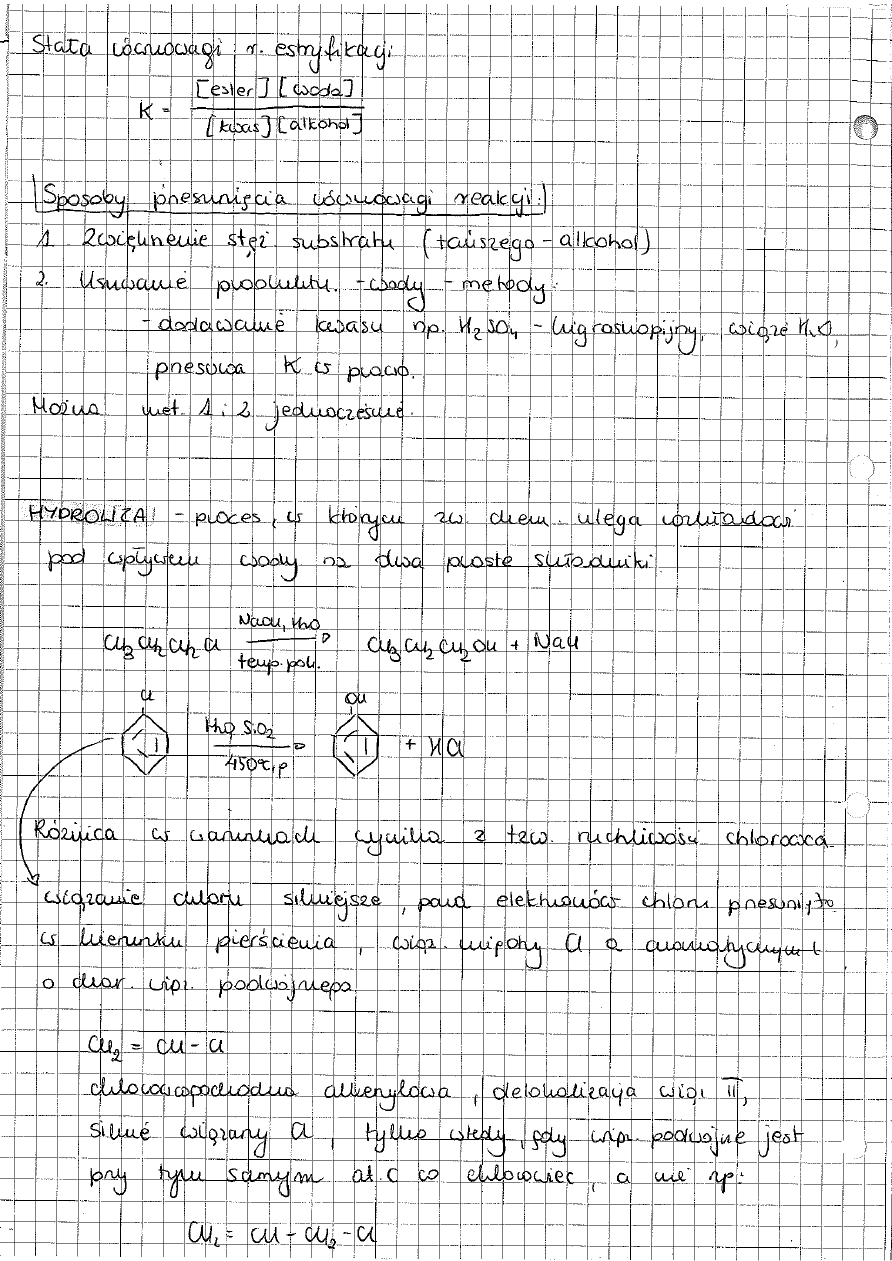 Stała równowagi r. estryfikacji
K = [ester] [woda] / [kwas] [alkohol]
Sposoby przesunięcia równowagi reakcji:
1. Zwiększenie stęż. substratu (tańszego - alkohol)
2. Usuwanie produktu - wody - metody:
- dodawanie kwasu np. H₂SO₄ - higroskopijny, wiąże H₂O,
przesuwa K w prawo.
Można met. 1 i 2 jednocześnie.
HYDROLIZA: - proces, w którym zw. chem. ulega rozkładowi
pod wpływem wody na dwa proste składniki.
CH₃CH₂CH₂Cl NaOH, H₂O → temp. pok. CH₃CH₂CH₂OH + NaCl
Cl H₂O, SiO₂ → 450°C, p OH + HCl
Różnica w warunkach wynika z tzw. ruchliwości chlorowca
wiązanie chloru silniejsze, para elektronów chloru przesunięta
w kierunku pierścienia, wiąz. między Cl a aromatycznym
o char. wiąz. podwójnego
CH₂ = CH - Cl
chlorowcopochodna alkenylowa, delokalizacja wiąz. π,
silnie związany Cl, tylko wtedy, gdy wiąz. podwójne jest
przy tym samym at. C co chlorowiec, a nie np:
CH₂ = CH - CH₂ - Cl